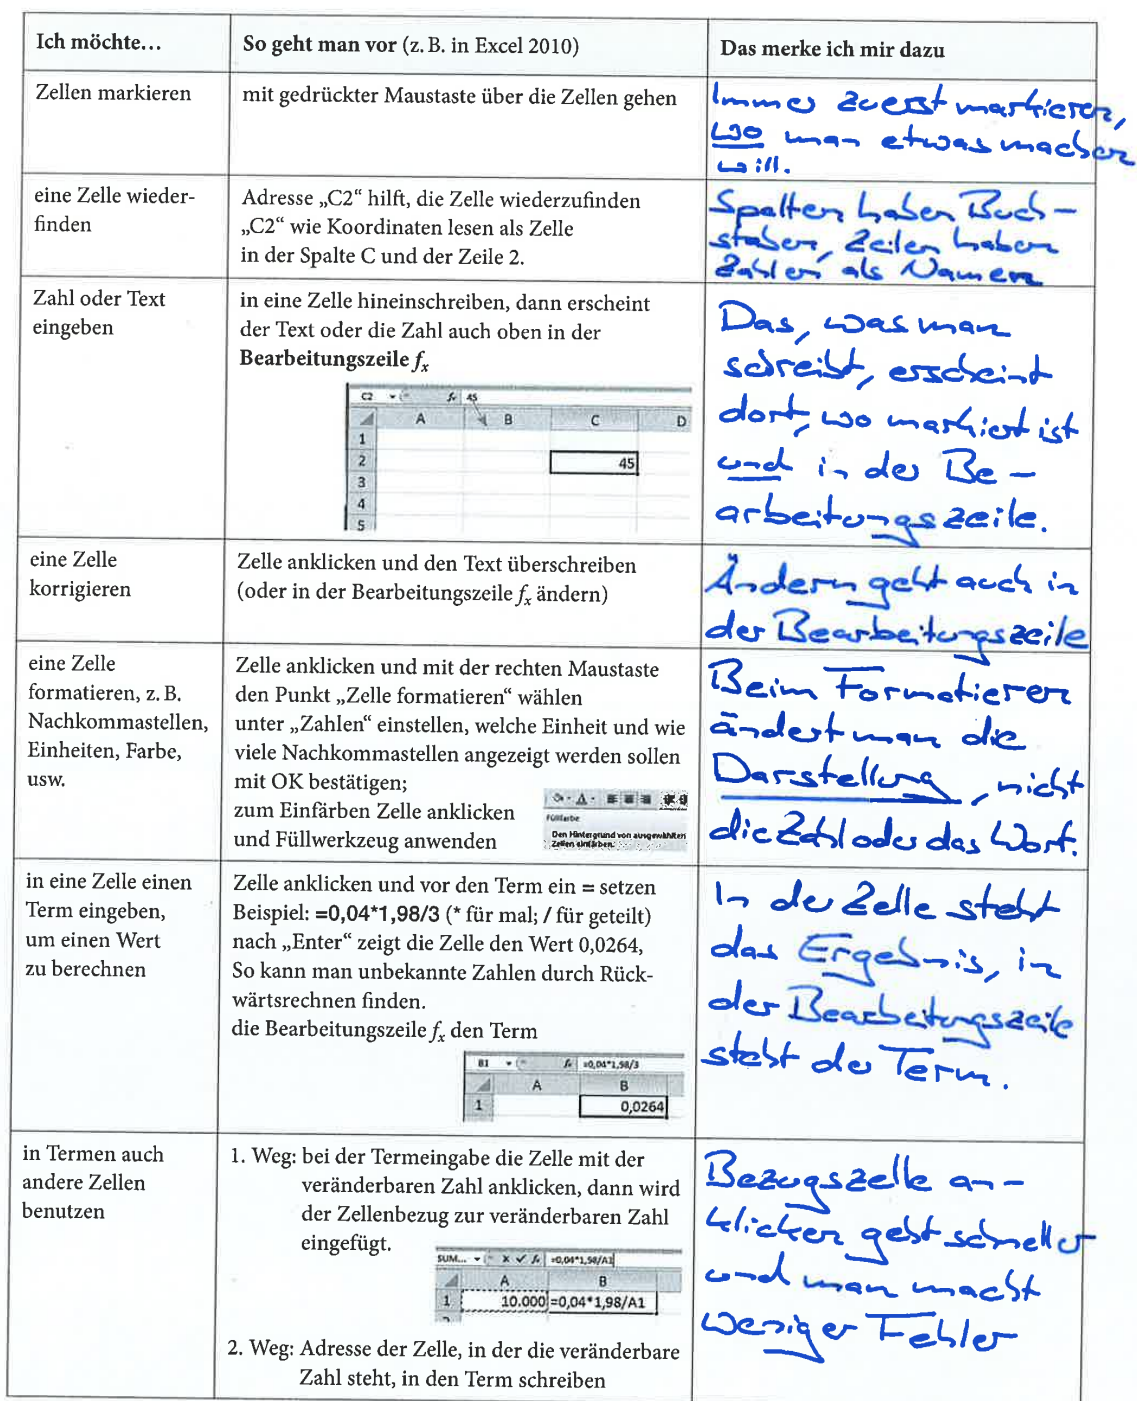 Ich möchte…
So geht man vor (z. B. in Excel 2010)
Das merke ich mir dazu
Zellen markieren
mit gedrückter Maustaste über die Zellen gehen
Immer zuerst markieren,
wo man etwas machen
will.
eine Zelle wieder-
finden
Adresse „C2“ hilft, die Zelle wiederzufinden
„C2“ wie Koordinaten lesen als Zelle
in der Spalte C und der Zeile 2.
Spalten haben Buch-
staben, Zeilen haben
Zahlen als Namen
Zahl oder Text
eingeben
in eine Zelle hineinschreiben, dann erscheint
der Text oder die Zahl auch oben in der
Bearbeitungszeile fx
C2 fx 45
A B C D
1
2 45
3
4
5
Das, was man
schreibt, erscheint
dort, wo markiert ist
und in der Be-
arbeitungszeile.
eine Zelle
korrigieren
Zelle anklicken und den Text überschreiben
(oder in der Bearbeitungszeile fx ändern)
Ändern geht auch in
der Bearbeitungszeile
eine Zelle
formatieren, z. B.
Nachkommastellen,
Einheiten, Farbe,
usw.
Zelle anklicken und mit der rechten Maustaste
den Punkt „Zelle formatieren“ wählen
unter „Zahlen“ einstellen, welche Einheit und wie
viele Nachkommastellen angezeigt werden sollen
mit OK bestätigen;
zum Einfärben Zelle anklicken
und Füllwerkzeug anwenden
Füllfarbe
Den Hintergrund von ausgewählten
Zellen einfärben.
Beim Formatieren
ändert man die
Darstellung, nicht
die Zahl oder das Wort.
in eine Zelle einen
Term eingeben,
um einen Wert
zu berechnen
Zelle anklicken und vor den Term ein = setzen
Beispiel: =0,04*1,98/3 (* für mal; / für geteilt)
nach „Enter“ zeigt die Zelle den Wert 0,0264,
So kann man unbekannte Zahlen durch Rück-
wärtsrechnen finden.
die Bearbeitungszeile fx den Term
B1 fx =0,04*1,98/3
A B
1 0,0264
In der Zelle steht
das Ergebnis, in
der Bearbeitungszeile
steht der Term.
in Termen auch
andere Zellen
benutzen
1. Weg: bei der Termeingabe die Zelle mit der
veränderbaren Zahl anklicken, dann wird
der Zellenbezug zur veränderbaren Zahl
eingefügt.
SUM... fx =0,04*1,98/A1
A B
1 10.000 =0,04*1,98/A1
2. Weg: Adresse der Zelle, in der die veränderbare
Zahl steht, in den Term schreiben
Bezugszelle an-
klicken geht schneller
und man macht
weniger Fehler